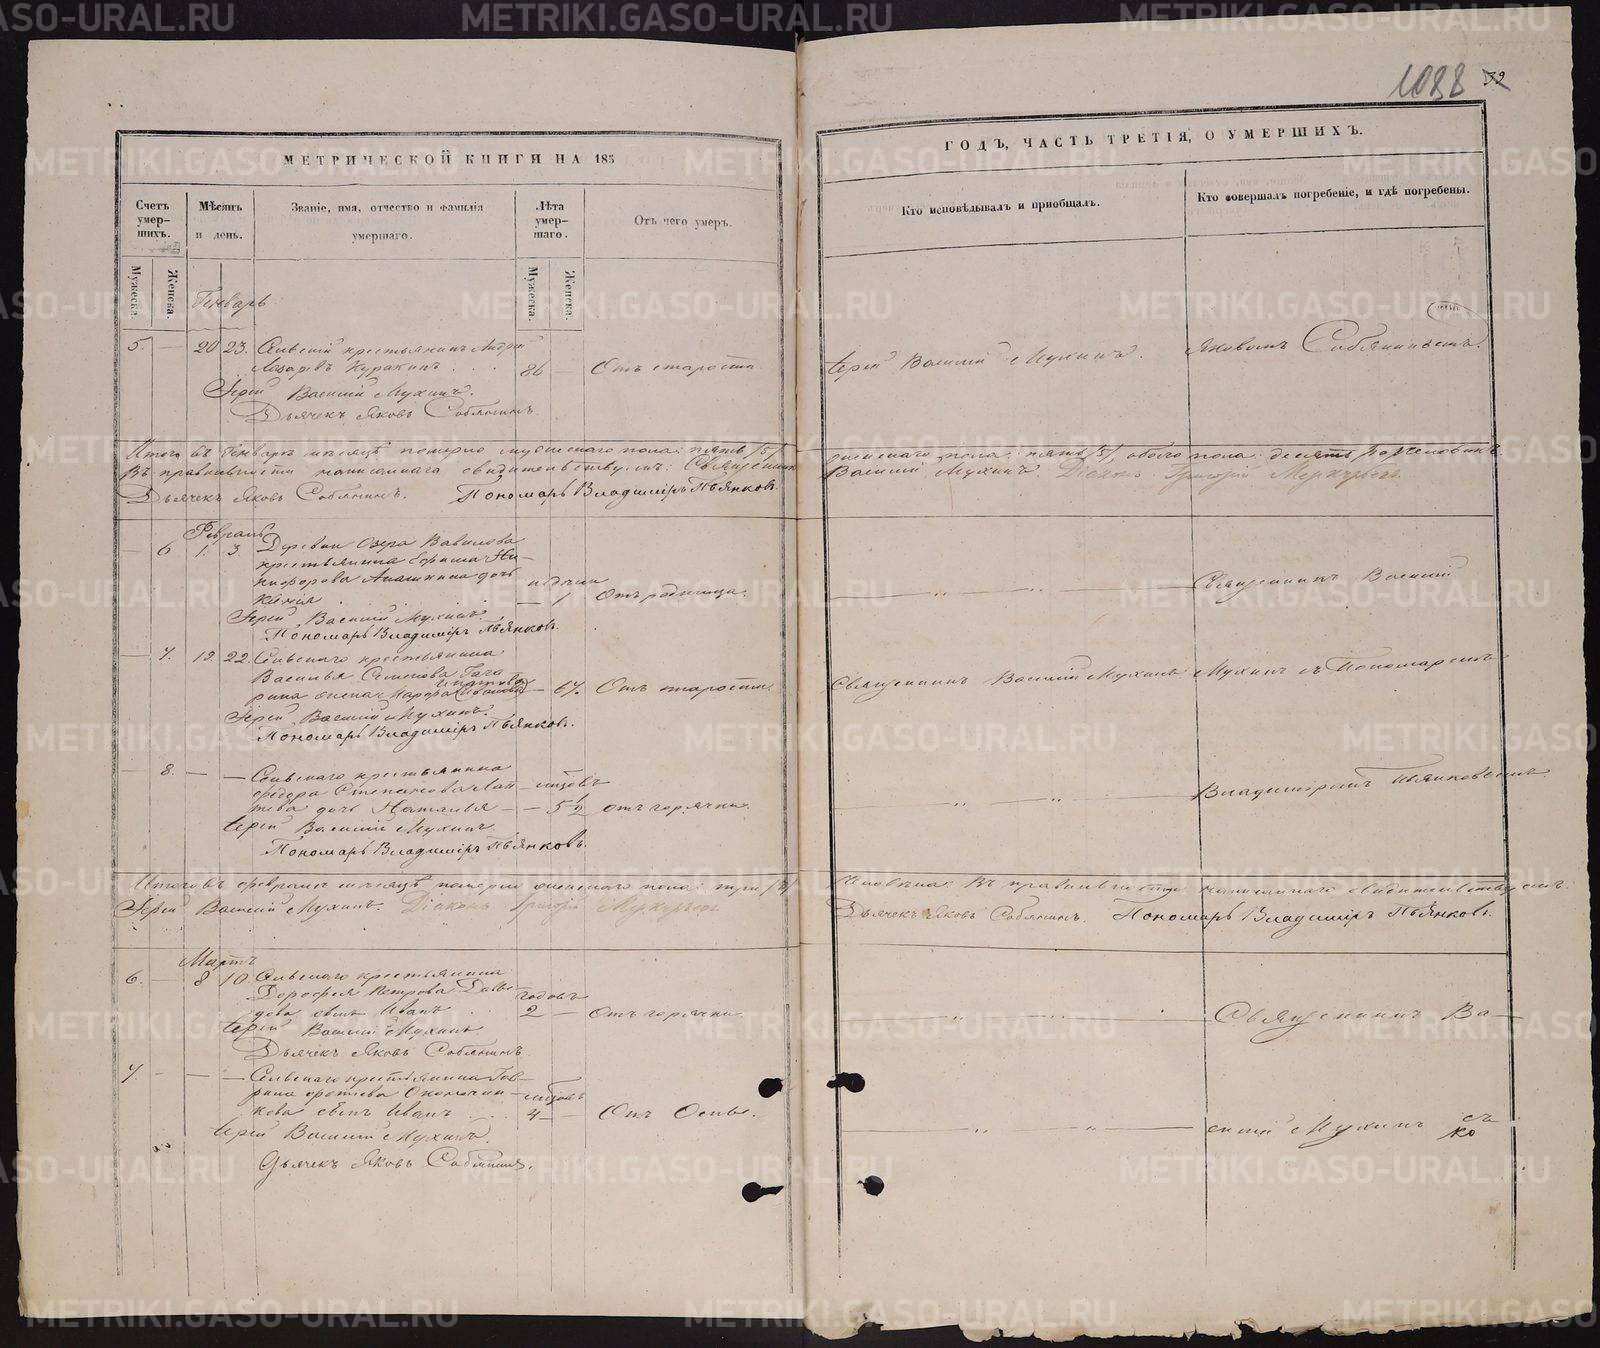 1088 32
МЕТРИЧЕСКОЙ КНИГИ НА 185
ГОДЪ, ЧАСТЬ ТРЕТІЯ, О УМЕРШИХЪ.
Счетъ умер-шихъ.
Мѣсяцъ и день.
Званіе, имя, отчество и фамилія умершаго.
Лѣта умер-шаго.
Отъ чего умеръ.
Кто исповѣдывалъ и пріобщалъ.
Кто совершалъ погребеніе, и гдѣ погребены.
Мужеска.
Женска.
Мужеска.
Женска.
Генварь
5. — 20 23. Сельскій крестьянинъ Андрей
Лазаревъ Куракинъ 86 — Отъ старости
Іерей Василій Мухинъ.
Дьячекъ Яковъ Соблинъ
Іерей Василій Мухинъ.
Яковомъ
Итого въ Генварѣ мѣсяцѣ померло мужескаго пола: пять /5/
женскаго пола: пять /5/, обоего пола: десять человѣкъ.
Въ правильности написаннаго свидѣтельствуемъ: Священникъ
Василій Мухинъ Діаконъ Григорій Меркурьевъ.
Дьячекъ Яковъ Пономарь Владиміръ Пьянковъ.
Февраль
— 6 1. 3. Деревни Озера Вавилова
крестьянина Ефима Ни-
кифорова дочь
недѣли
— 1 Отъ родимца.
Іерей Василій Мухинъ.
Пономарь Владиміръ Пьянковъ.
Священникъ Василій
— 7. 19. 22. Сельскаго крестьянина
Василья Семенова
— 67. Отъ старости.
Іерей Василій Мухинъ.
Пономарь Владиміръ Пьянковъ.
Священникъ Василій Мухинъ
Мухинъ съ Пономаремъ
— 8. — — Сельскаго крестьянина
Федора Степанова
мѣсяцовъ
дочь Наталья — — 5 1/2 отъ горячки.
Іерей Василій Мухинъ
Пономарь Владиміръ Пьянковъ.
Владиміромъ Пьянковымъ.
Итого въ февралѣ мѣсяцѣ померло женскаго пола: три /3/
человѣка. Въ правильности написаннаго свидѣтельствуемъ:
Іерей Василій Мухинъ. Діаконъ Григорій Меркурьевъ
Дьячекъ Яковъ Пономарь Владиміръ Пьянковъ.
Мартъ
6. — 8 10 Сельскаго крестьянина
Дорофея Петрова Давы-
дова сынъ Иванъ
годовъ
2 — Отъ горячки
Іерей Василій Мухинъ
Дьячекъ Яковъ
Священникъ Ва-
7. — — — Сельскаго крестьянина Гав-
рила
сынъ Иванъ
мѣсяцовъ
4 — Отъ Оспы.
Іерей Василій Мухинъ
Дьячекъ Яковъ
силій Мухинъ съ
METRIKI.GASO-URAL.RU